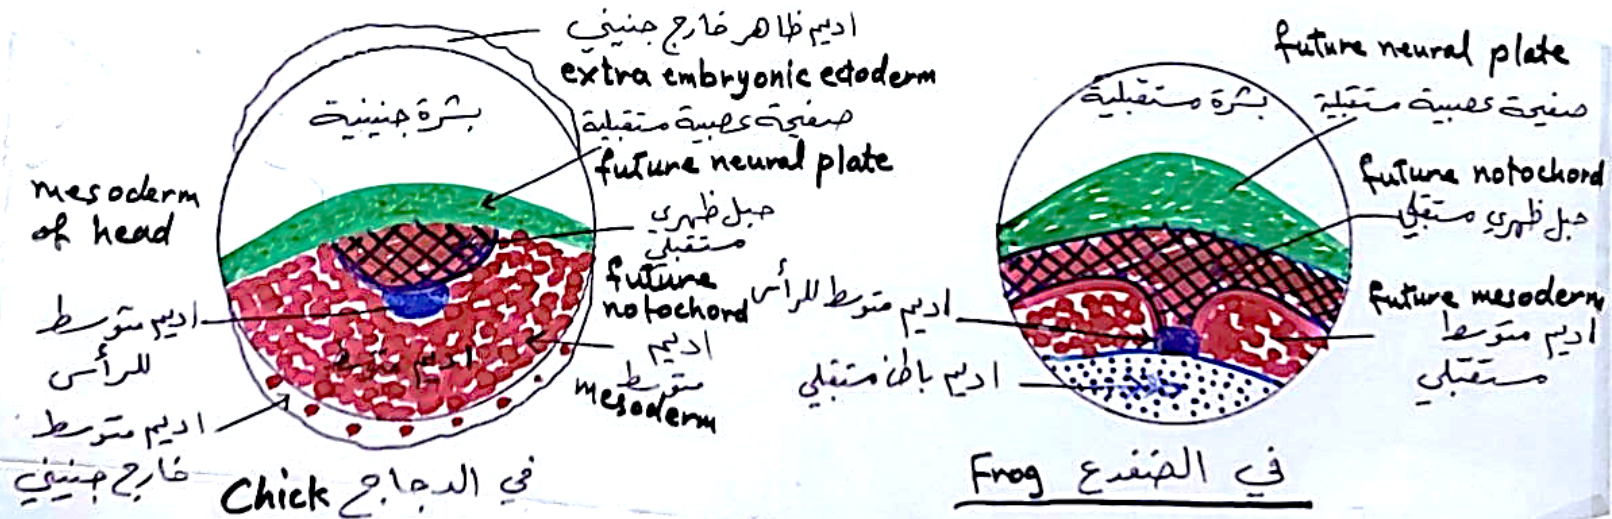 اديم ظاهر خارج جنيني
extra embryonic ectoderm
بشرة جنينية
صفيحة عصبية مستقبلية
future neural plate
mesoderm
of head
حبل ظهري
مستقبلي
future
notochord
اديم متوسط
للرأس
اديم متوسط
اديم
متوسط
mesoderm
اديم متوسط
خارج جنيني
Chick في الدجاج
future neural plate
بشرة مستقبلية
صفيحة عصبية مستقبلية
future notochord
حبل ظهري مستقبلي
اديم متوسط للرأس
future mesoderm
اديم متوسط
مستقبلي
اديم باطن مستقبلي
Frog في الضفدع